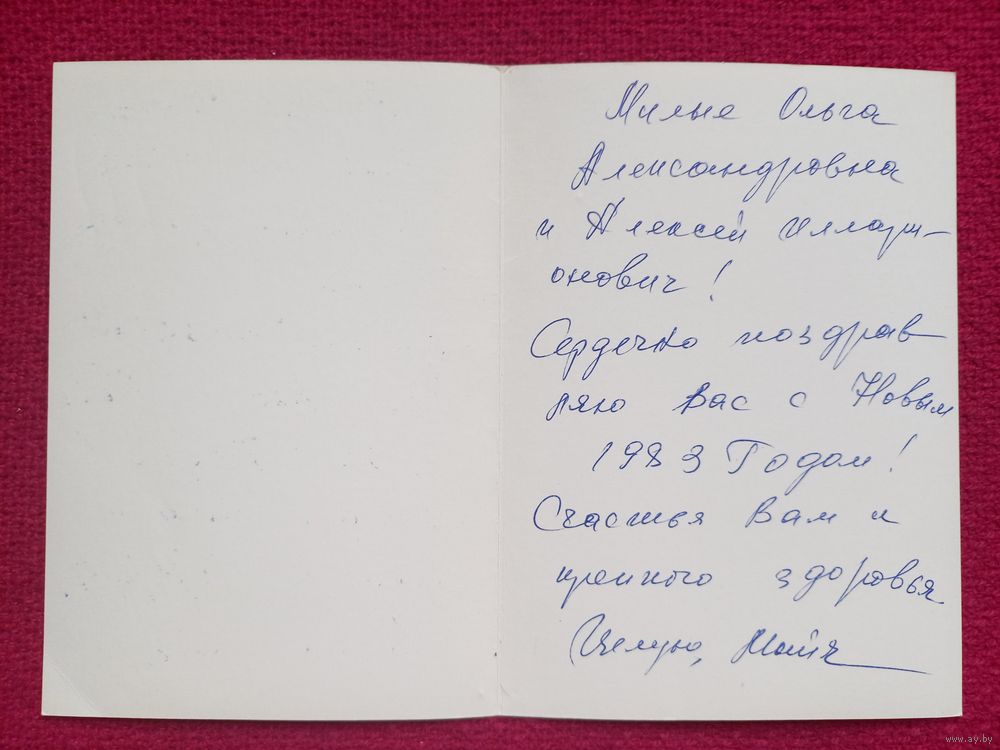 Милые Ольга
Александровна
и Алексей Иллари-
онович!
Сердечно поздрав
ляю Вас с Новым
1983 Годом!
Счастья Вам и
крепкого здоровья
Целую, Майя
www.ay.by